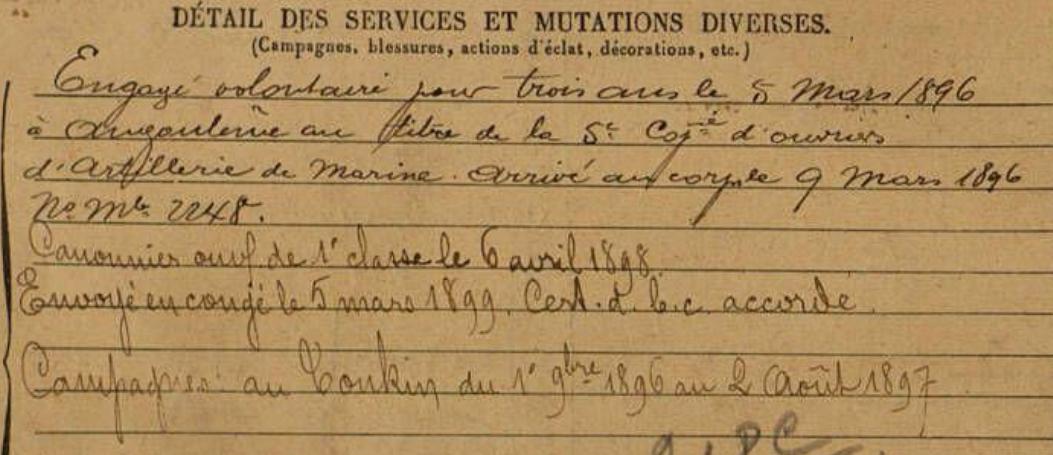 DÉTAIL DES SERVICES ET MUTATIONS DIVERSES.
(Campagnes, blessures, actions d'éclat, décorations, etc.)
Engagé volontaire pour trois ans le 5 Mars 1896
à Angoulême au titre de la 5e Cogie d'ouvriers
d'Artillerie de Marine. Arrivé au corps le 9 Mars 1896
No Mle 2248.
Canonnier ouvr. de 1e classe le 6 avril 1898.
Envoyé en congé le 5 mars 1899. Cert. d. b.c. accordé.
Campagnes: au Tonkin du 1e 9bre 1896 au 2 Août 1897